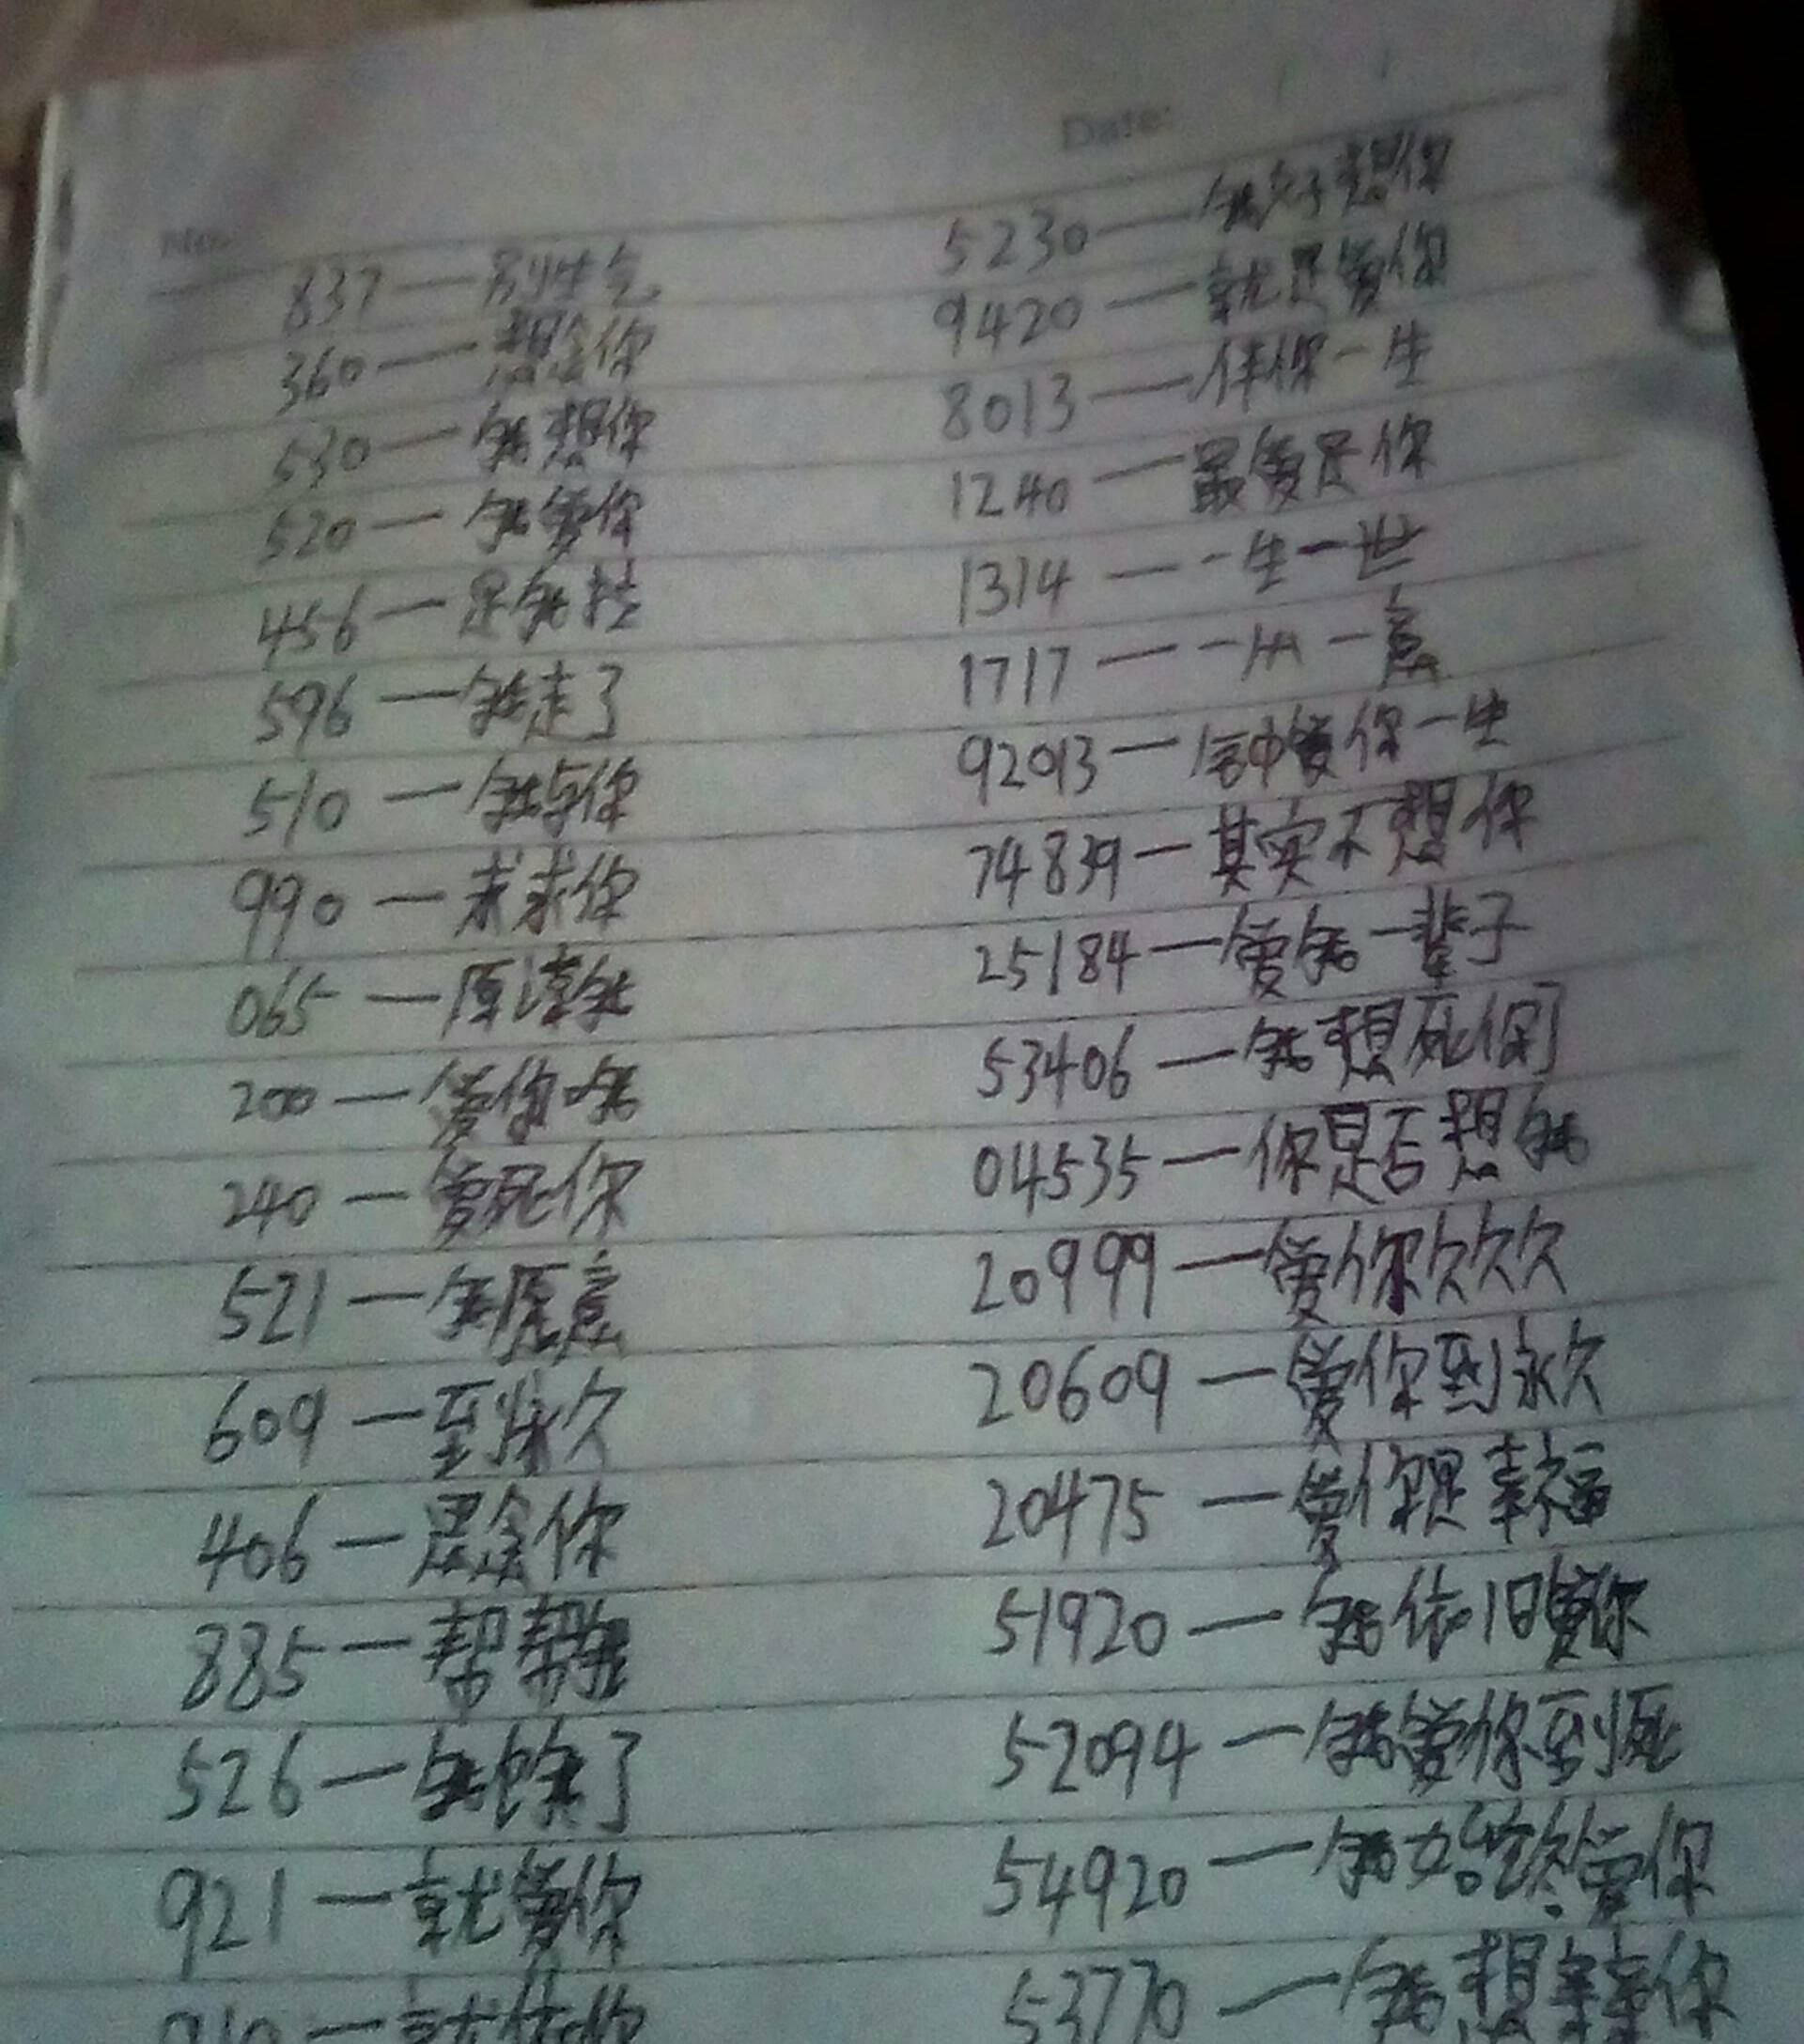 No.
Date:
837—别生气
360—想念你
530—我想你
520—我爱你
456—是我拉
596—我走了
510—我与你
990—求求你
065—原谅我
200—爱你哦
240—爱死你
521—我愿意
609—到永久
406—思念你
885—帮帮我
526—我饿了
921—就爱你
910—就依你
5230—我好想你
9420—就是爱你
8013—伴你一生
1240—最爱是你
1314—一生一世
1717—一心一意
92013—钟爱你一生
74839—其实不想你
25184—爱我一辈子
53406—我想死你了
04535—你是否想我
20999—爱你久久久
20609—爱你到永久
20475—爱你是幸福
51920—我依旧爱你
52094—我爱你到死
54920—我始终爱你
53770—我想亲亲你